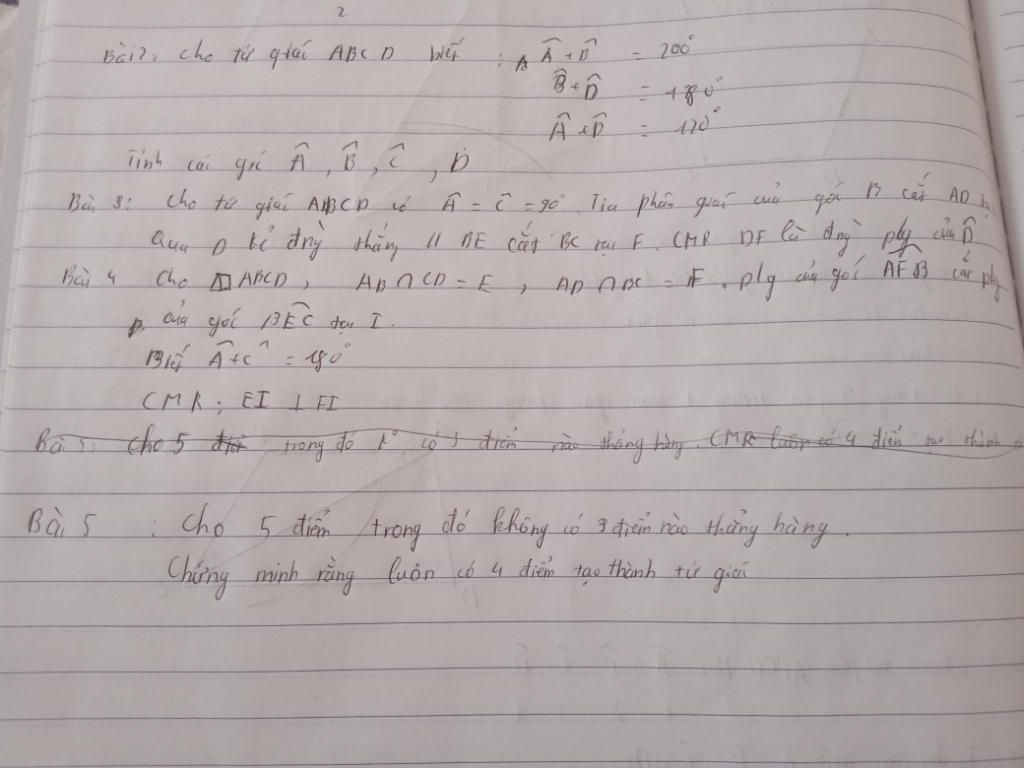 2
Bài 2: cho tứ giác ABCD biết : Â + B̂ = 200°
B̂ + D̂ = 180°
Â + D̂ = 120°
Tính các góc Â, B̂, Ĉ, D̂
Bài 3: Cho tứ giác ABCD có Â = Ĉ = 90°. Tia phân giác của góc B cắt AD tại
Qua D kẻ đng̀ thẳng // BE cắt BC tại F. CMR DF là đng̀ plg của D̂
Bài 4 Cho □ABCD, AB ∩ CD = E, AD ∩ BC = F. plg của góc AFB cắt plg
của góc BEC tại I.
Biết Â + Ĉ = 180°
CMR: EI ⊥ FI
Bài 5: Cho 5 điểm trong đó k° có 3 điểm nào thẳng hàng. CMR luôn có 4 điểm tạo thành
Bài 5 : Cho 5 điểm trong đó không có 3 điểm nào thẳng hàng.
Chứng minh rằng luôn có 4 điểm tạo thành tứ giác